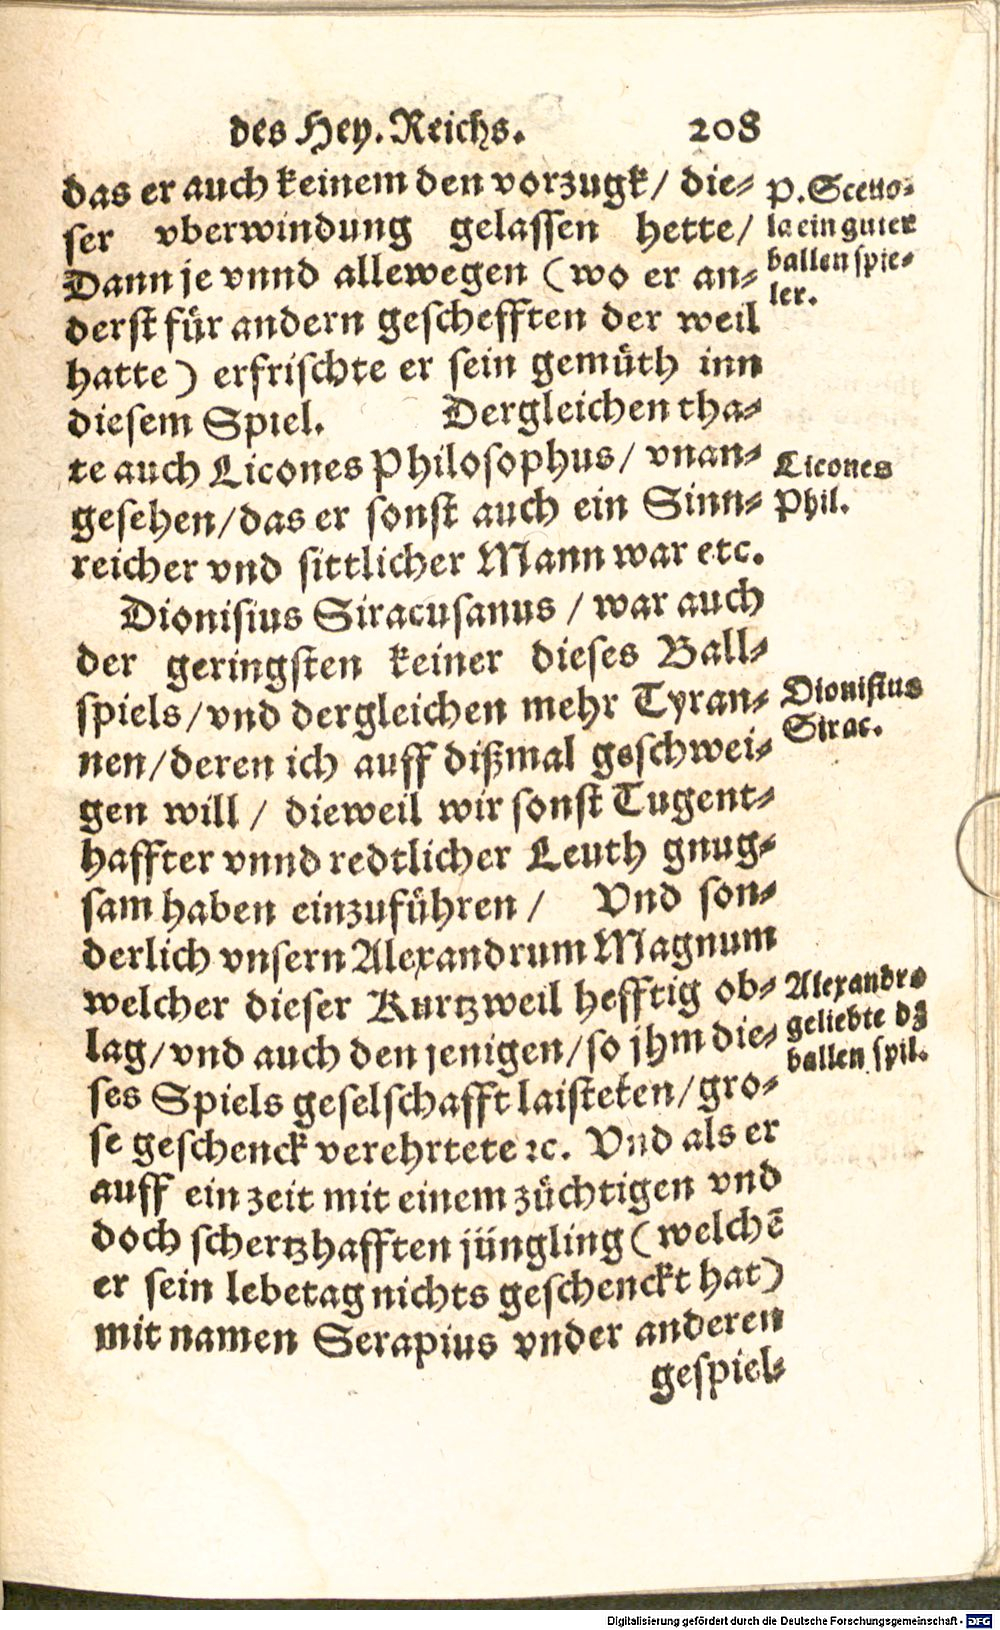 des Hey. Reichs. 208
das er auch keinem den vorzugk/ die-
ser vberwindung gelassen hette/
Dann je vnnd allewegen (wo er an-
derst für andern geschefften der weil
hatte) erfrischte er sein gemüth inn
diesem Spiel. Dergleichen tha-
te auch Licones Philosophus/ vnan-
gesehen/das er sonst auch ein Sinn-
reicher vnd sittlicher Mann war etc.
Dionisius Siracusanus / war auch
der geringsten keiner dieses Ball-
spiels/vnd dergleichen mehr Tyran-
nen/deren ich auff dißmal geschwei-
gen will / dieweil wir sonst Tugent-
haffter vnnd redtlicher Leuth gnug-
sam haben einzuführen / Vnd son-
derlich vnsern Alexandrum Magnum
welcher dieser Kurtzweil hefftig ob-
lag/vnd auch den jenigen/so jhm die-
ses Spiels geselschafft laisteten/gro-
se geschenck verehrtete ꝛc. Vnd als er
auff ein zeit mit einem züchtigen vnd
doch schertzhafften jüngling (welchē
er sein lebetag nichts geschenckt hat)
mit namen Serapius vnder anderen
gespiel-
P. Sceuo-
la ein guter
ballen spie-
ler.
Licones
Phil.
Dionisius
Sirac.
Alexandrꝰ
geliebte dz
ballen spil.
Digitalisierung gefördert durch die Deutsche Forschungsgemeinschaft - DFG